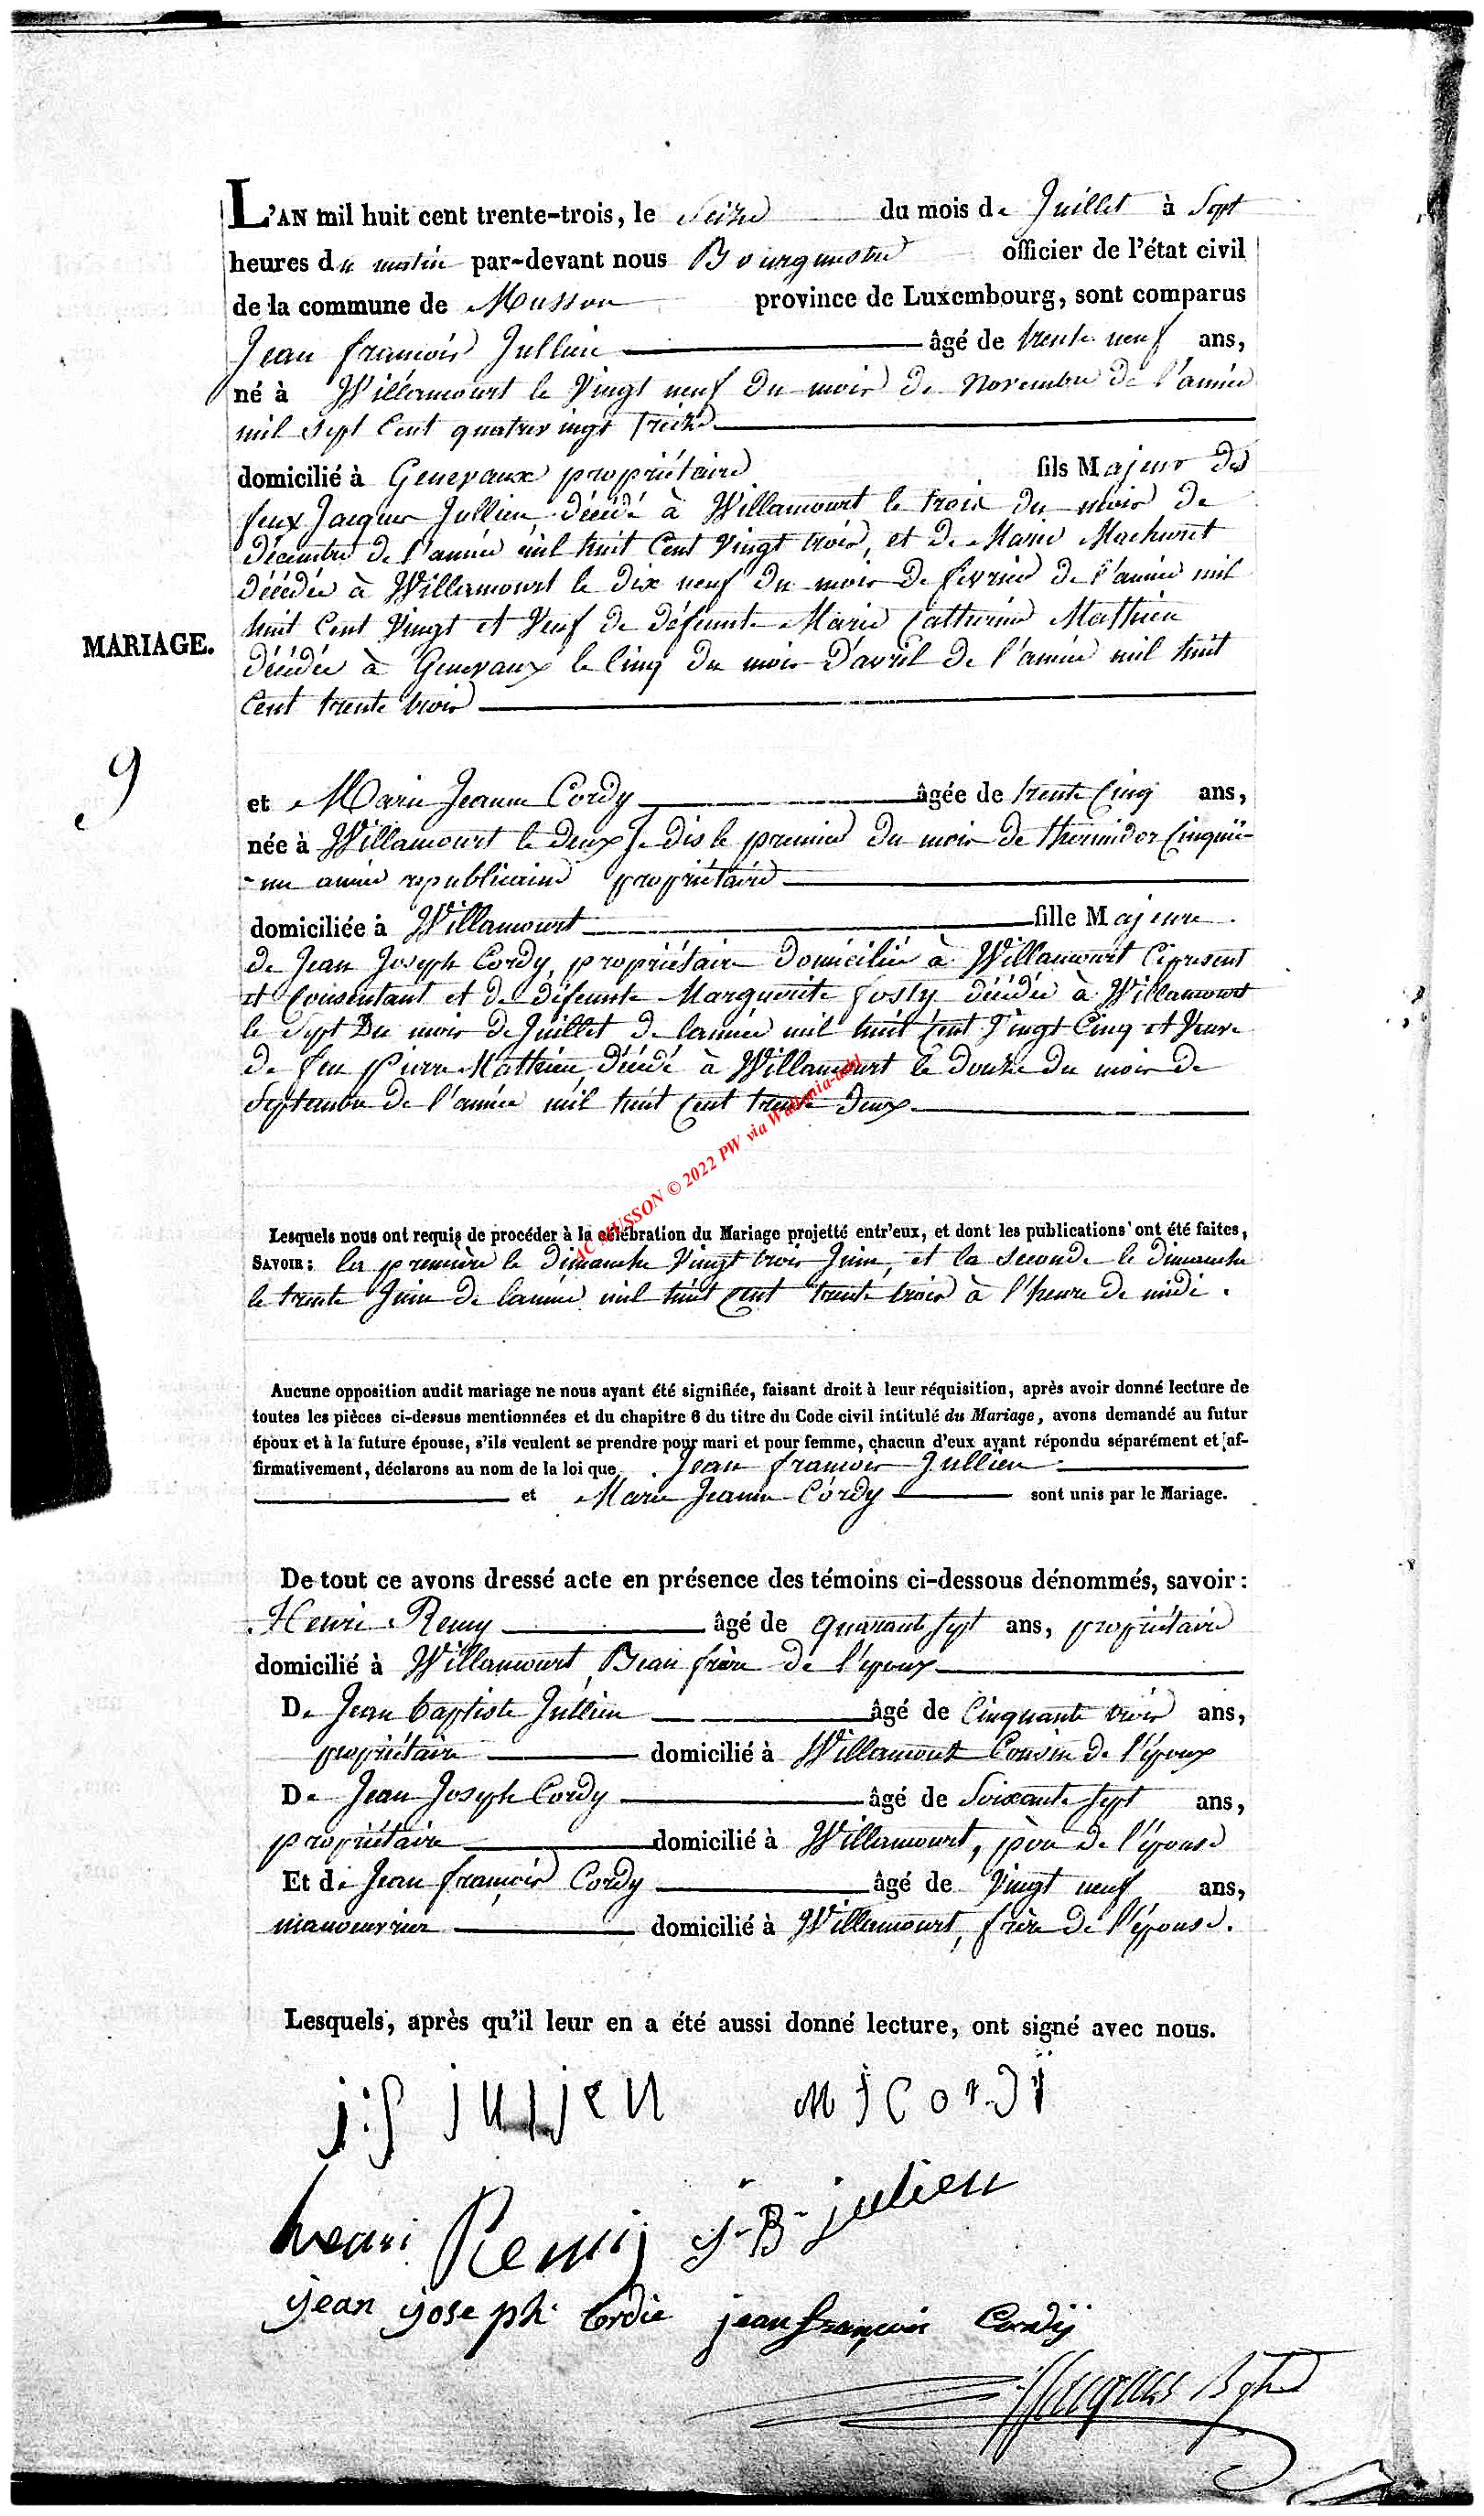 L'AN mil huit cent trente-trois, le Seize du mois de Juillet à Sept
heures du matin par-devant nous Bourgmestre officier de l'état civil
de la commune de Musson province de Luxembourg, sont comparus
Jean francois Jullien âgé de trente neuf ans,
né à Willancourt le Vingt neuf du mois de novembre de l'année
mil sept Cent quatrevingt treize
domicilié à Gennevaux propriétaire fils Majeur des
feux Jacques Jullien, décédé à Willancourt le trois du mois de
décembre de l'année mil huit Cent Vingt trois, et de Marie Machuret
décédée à Willancourt le dix neuf du mois de fevrier de l'année mil
huit Cent Vingt et Veuf de défunte Marie Catherine Mathieu
MARIAGE.
décédée à Gennevaux le Cinq du mois d'avril de l'année mil huit
Cent trente trois
9
et Marie Jeanne Cordy âgée de trente Cinq ans,
née à Willancourt le deux Je dis le premier du mois de thermidor Cinquiè-
-me année republicaine propriétaire
domiciliée à Willancourt fille Majeure
de Jean Joseph Cordy, propriétaire domicilié à Willancourt Cipresent
et Consentant et de défunte Marguerite fosty décédée à Willancourt
le Sept Du mois de Juillet de lannée mil huit Cent Vingt Cinq et Veuve
de feu Pierre Mathieu décédé à Willancourt le douze du mois de
Septembre de l'année mil huit Cent trente deux
AC MUSSON © 2022 PW via Wallonia-asbl
Lesquels nous ont requis de procéder à la célébration du Mariage projetté entr'eux, et dont les publications ont été faites,
SAVOIR: la première le dimanche Vingt trois Juin, et la seconde le dimanche
le trente Juin de lannée mil huit Cent trente trois à l'heure de midi.
Aucune opposition audit mariage ne nous ayant été signifiée, faisant droit à leur réquisition, après avoir donné lecture de
toutes les pièces ci-dessus mentionnées et du chapitre 6 du titre du Code civil intitulé du Mariage, avons demandé au futur
époux et à la future épouse, s'ils veulent se prendre pour mari et pour femme, chacun d'eux ayant répondu séparément et af-
firmativement, déclarons au nom de la loi que Jean francois Jullien
et Marie Jeanne Cordy sont unis par le Mariage.
De tout ce avons dressé acte en présence des témoins ci-dessous dénommés, savoir:
Henri Remy âgé de quarante sept ans, propriétaire
domicilié à Willancourt, Beau frère de l'époux
De Jean baptiste Jullien âgé de Cinquante trois ans,
propriétaire domicilié à Willancourt Cousin de l'époux
De Jean Joseph Cordy âgé de Soixante sept ans,
propriétaire domicilié à Willancourt, père de l'épouse
Et de Jean françois Cordy âgé de Vingt neuf ans,
manoeuvrier domicilié à Willancourt, frère de l'épouse.
Lesquels, après qu'il leur en a été aussi donné lecture, ont signé avec nous.
j:f julien MJ Cordÿ
henri Remij J-B-julien
jean joseph Cordie jean françois Cordÿ